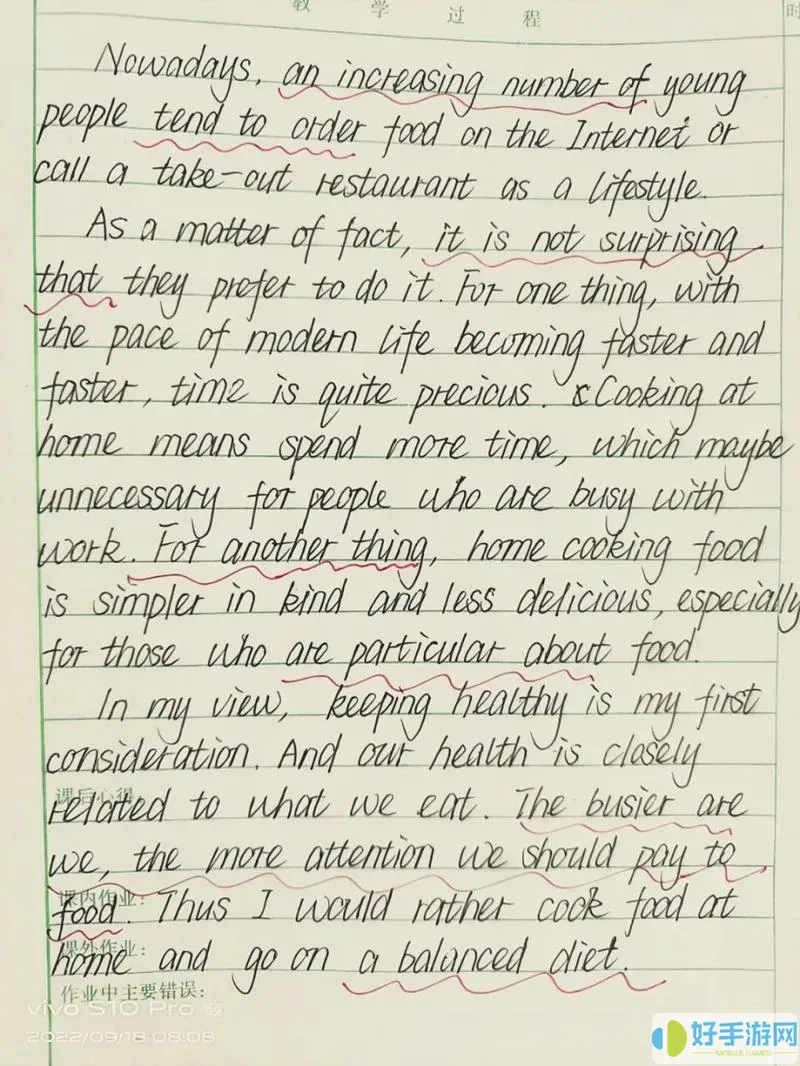 教 学 过 程 时
Nowadays, an increasing number of young
people tend to order food on the Internet or
call a take-out restaurant as a lifestyle.
As a matter of fact, it is not surprising
that they prefer to do it. For one thing, with
the pace of modern life becoming faster and
faster, time is quite precious. Cooking at
home means spend more time, which maybe
unnecessary for people who are busy with
work. For another thing, home cooking food
is simpler in kind and less delicious, especially
for those who are particular about food.
In my view, keeping healthy is my first
consideration. And our health is closely
课后心得:
related to what we eat. The busier are
we, the more attention we should pay to
课内作业:
food. Thus I would rather cook food at
课外作业:
home and go on a balanced diet.
作业中主要错误:
vivo S10 Pro
2022/09/18 08:08
好手游网
MOBILE GAMES